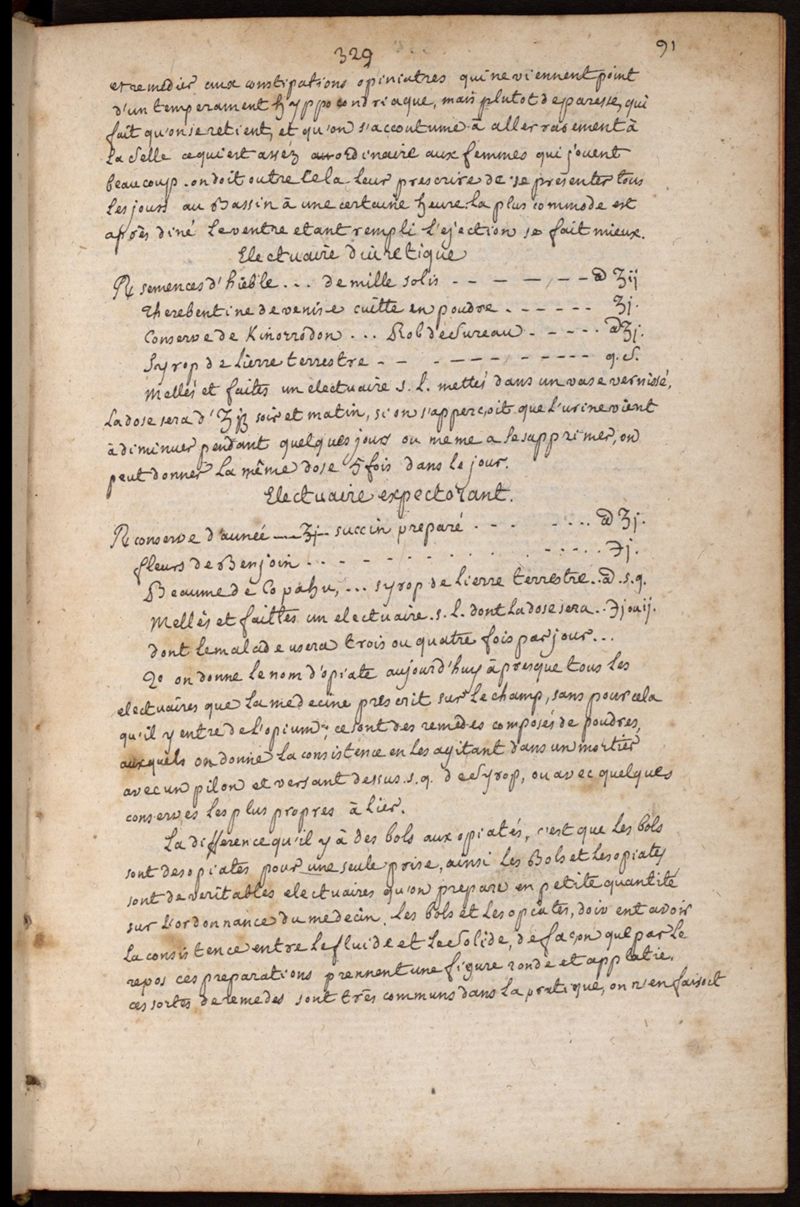 329
91
et remedier aux constipations opiniatres qui ne viennent point
d'un temperament hyppocondriaque, mais plutot de paresse, qui
fait qu'on se retient, et qu'on s'accoutume à aller rarement à
la selle ce qui est asséz ordinaire aux femmes qui jouent
beaucoup. on doit outre cela leur prescrire de se presenter tous
les jours au Bassin à une certaine heure. la plus commode est
après diné le ventre etant rempli l'ejection se fait mieux.
Electuaire diuretique
℞ semences d'hièble ... de mille solis - - - - - - ā ʒij
Therebentine de venise cuitte en poudre - - - - - - ʒj.
Conserve de Kinorrodon ... Rob de Sureau - - - - - ā ℥j.
Syrop de Lierre terrestre - - - - - - - - - - q.S.
Mellés et faites un electuaire s. l. mettés dans un vase vernissé,
La dose sera d'ʒjß soir et matin, si on s'apperçoit que l'urine vient
à diminuer pendant quelques jours ou meme a se supprimer, on
peut donner la même dose 5 fois dans le jour.
Electuaire expectorant.
℞ conserve d'aunéé — ℥j— succin preparé - - - - ... ā ʒj.
fleurs de Benjoin .. - - - - . . . . - . - .. ℈j.
Beaume de Copahu, ... syrop de Lierre terrestre .. ā. s.q.
Mellés et faittes un electuaire. s. l. dont la dose sera .. ℈j ou ij.
dont le malade usera trois ou quatre fois par jour ...
2o on donne le nom d'opiate aujourd'huy à presque tous les
electuaires que la medecine prescrit sur le champ, sans pour cela
qu'il y entre de l'opium, ce sont des remèdes composés de poudres,
auxquels on donne la consistence en les agitant dans un mortier
avec un pilon et versant dessus. s.q. de Syrop, ou avec quelques
conserves les plus propres à lier.
La difference qu'il y à des bols aux opiatés, c'est que les bols
sont des opiates pour une seule prise, ainsi les Bols et les opiates
sont de veritables electuaires qu'on prepare en petite quantité
sur l'ordonnance du medecin. Les bols et les opiates, doivent avoir
la consistence entre le fluide et le Solide, de façon que par le
repos ces preparations prennent une figure ronde et applatie.
ces sortes de remedes sont très communs dans la pratique, on n'en faisoit